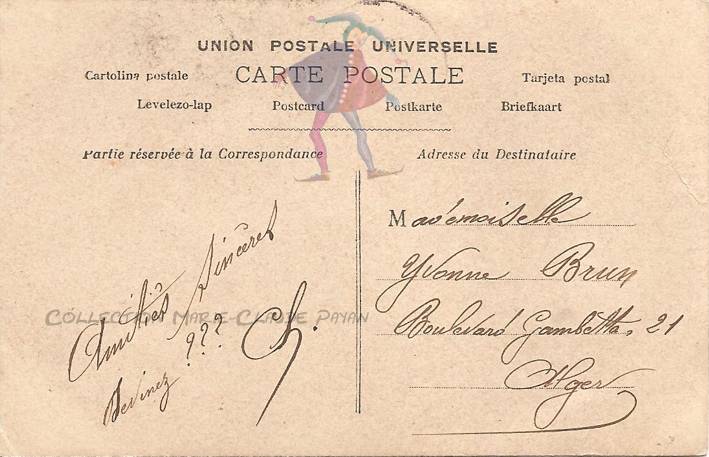 UNION POSTALE UNIVERSELLE
CARTE POSTALE
Cartolina postale
Tarjeta postal
Levelezo-lap
Postcard
Postkarte
Briefkaart
Partie réservée à la Correspondance
Adresse du Destinataire
Amitiés sincères
Devinez ???
Mademoiselle
Yvonne Brun
Boulevard Gambetta. 21
Alger
COLLECTION MARIE-CLAUDE PAYAN